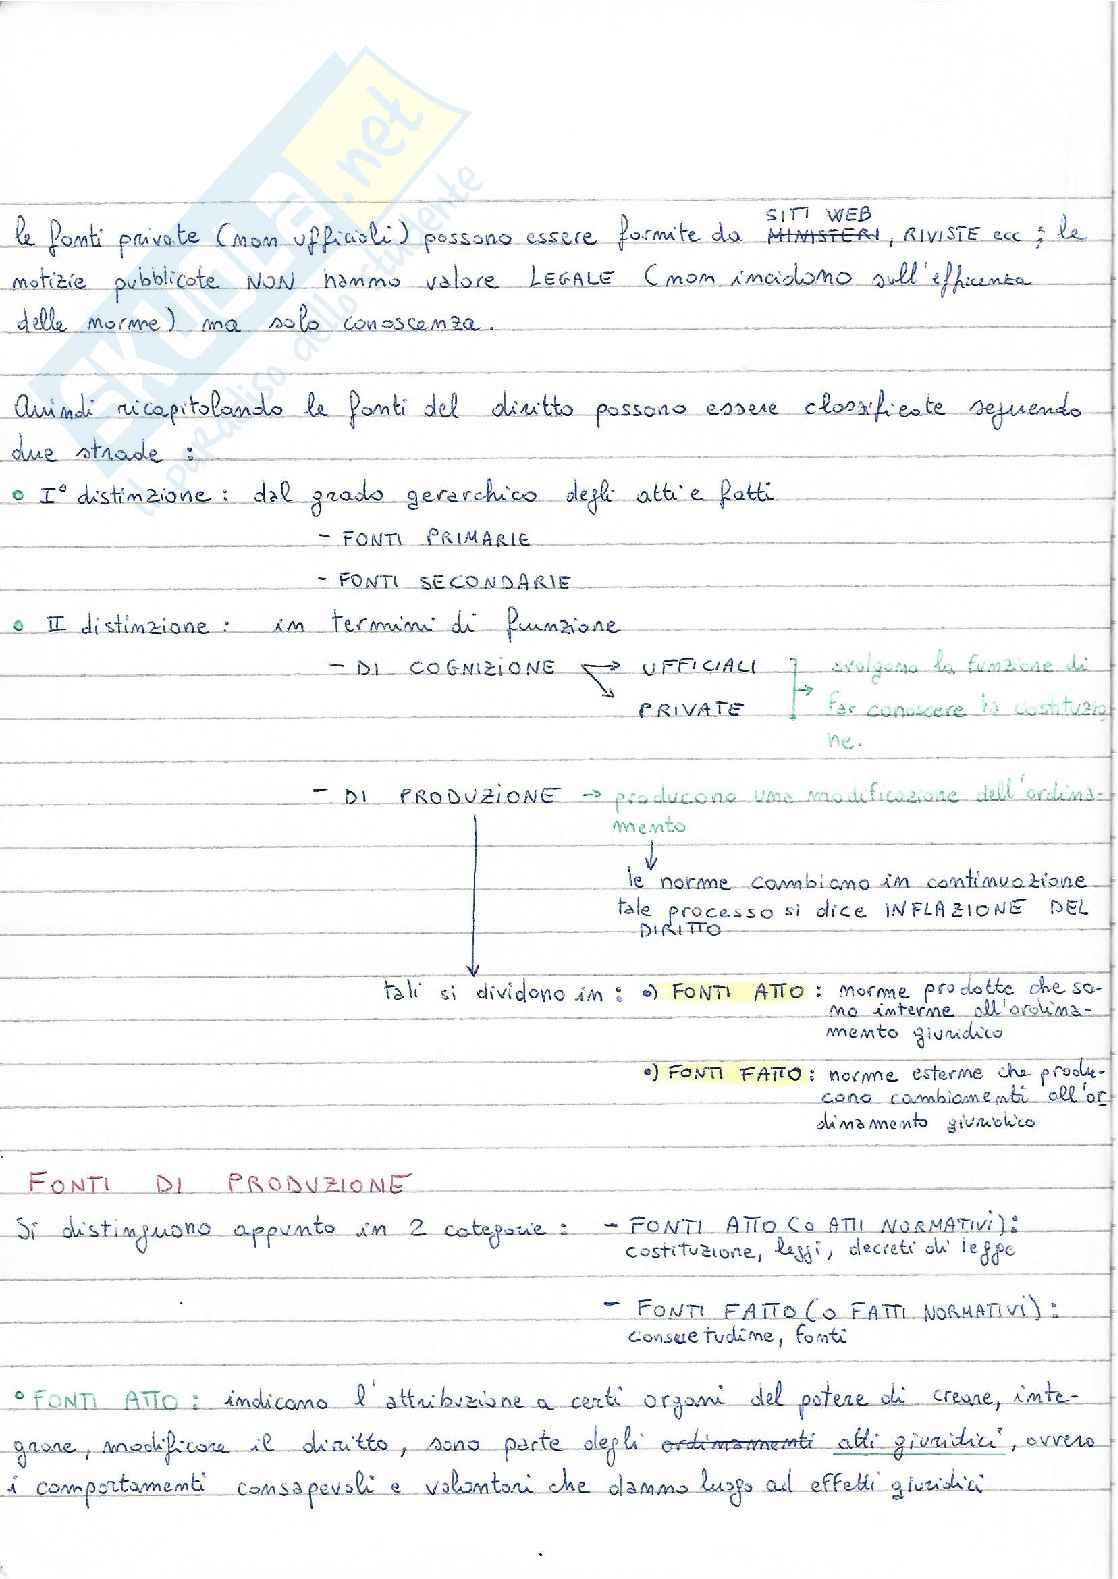 SKUOLA.net
il paradiso dello studente
SITI WEB
le fonti private (non ufficiali) possono essere fornite da MINISTERI, RIVISTE ecc ; le
notizie pubblicate NON hanno valore LEGALE (non incidono sull'efficenza
delle norme) ma solo conoscenza.
Quindi ricapitolando le fonti del diritto possono essere classificate seguendo
due strade :
I° distinzione : dal grado gerarchico degli atti e fatti
- FONTI PRIMARIE
- FONTI SECONDARIE
II distinzione : in termini di funzione
- DI COGNIZIONE → UFFICIALI
svolgono la funzione di
PRIVATE → far conoscere la costituzio
ne.
- DI PRODUZIONE → producono una modificazione dell'ordina-
mento
le norme cambiano in continuazione
tale processo si dice INFLAZIONE DEL
DIRITTO
tali si dividono in : •) FONTI ATTO : norme prodotte che so-
no interne all'ordina-
mento giuridico
•) FONTI FATTO : norme esterne che produ-
cono cambiamenti all'or
dinamento giuridico
FONTI DI PRODUZIONE
Si distinguono appunto in 2 categorie : - FONTI ATTO (O ATTI NORMATIVI) :
costituzione, leggi, decreti di legge
- FONTI FATTO (O FATTI NORMATIVI) :
consuetudine, fonti
° FONTI ATTO : indicano l'attribuzione a certi organi del potere di creare, inte-
grare, modificare il diritto, sono parte degli ordinamenti atti giuridici, ovvero
i comportamenti consapevoli e volontari che danno luogo ad effetti giuridici